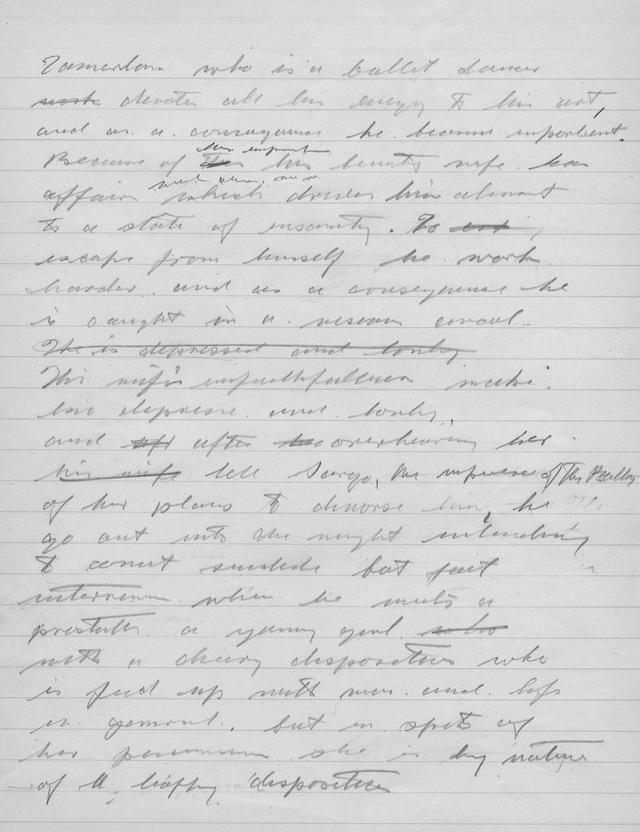 who is a ballet dancer
work devotes all his energy to his art,
and as a consequence he became impotent.
Because of his his beauty wife has
affairs which drives him almost
to a state of insanity. To
escape from himself he work
harder and as a consequence he
is caught in a
He is depressed and lonely
His wife's unfaithfullness make
him depresse and lonely,
and after overhearing her
his wife tell the of The Ballet
of her plans to divorse him, he
go out into the night intending
to comit suicide but fait
intervenes when he meets a
a young girl who
with a cheery disposition who
is feed up with men and life
in general. but in spite of
her she is by nature
of a happy disposition